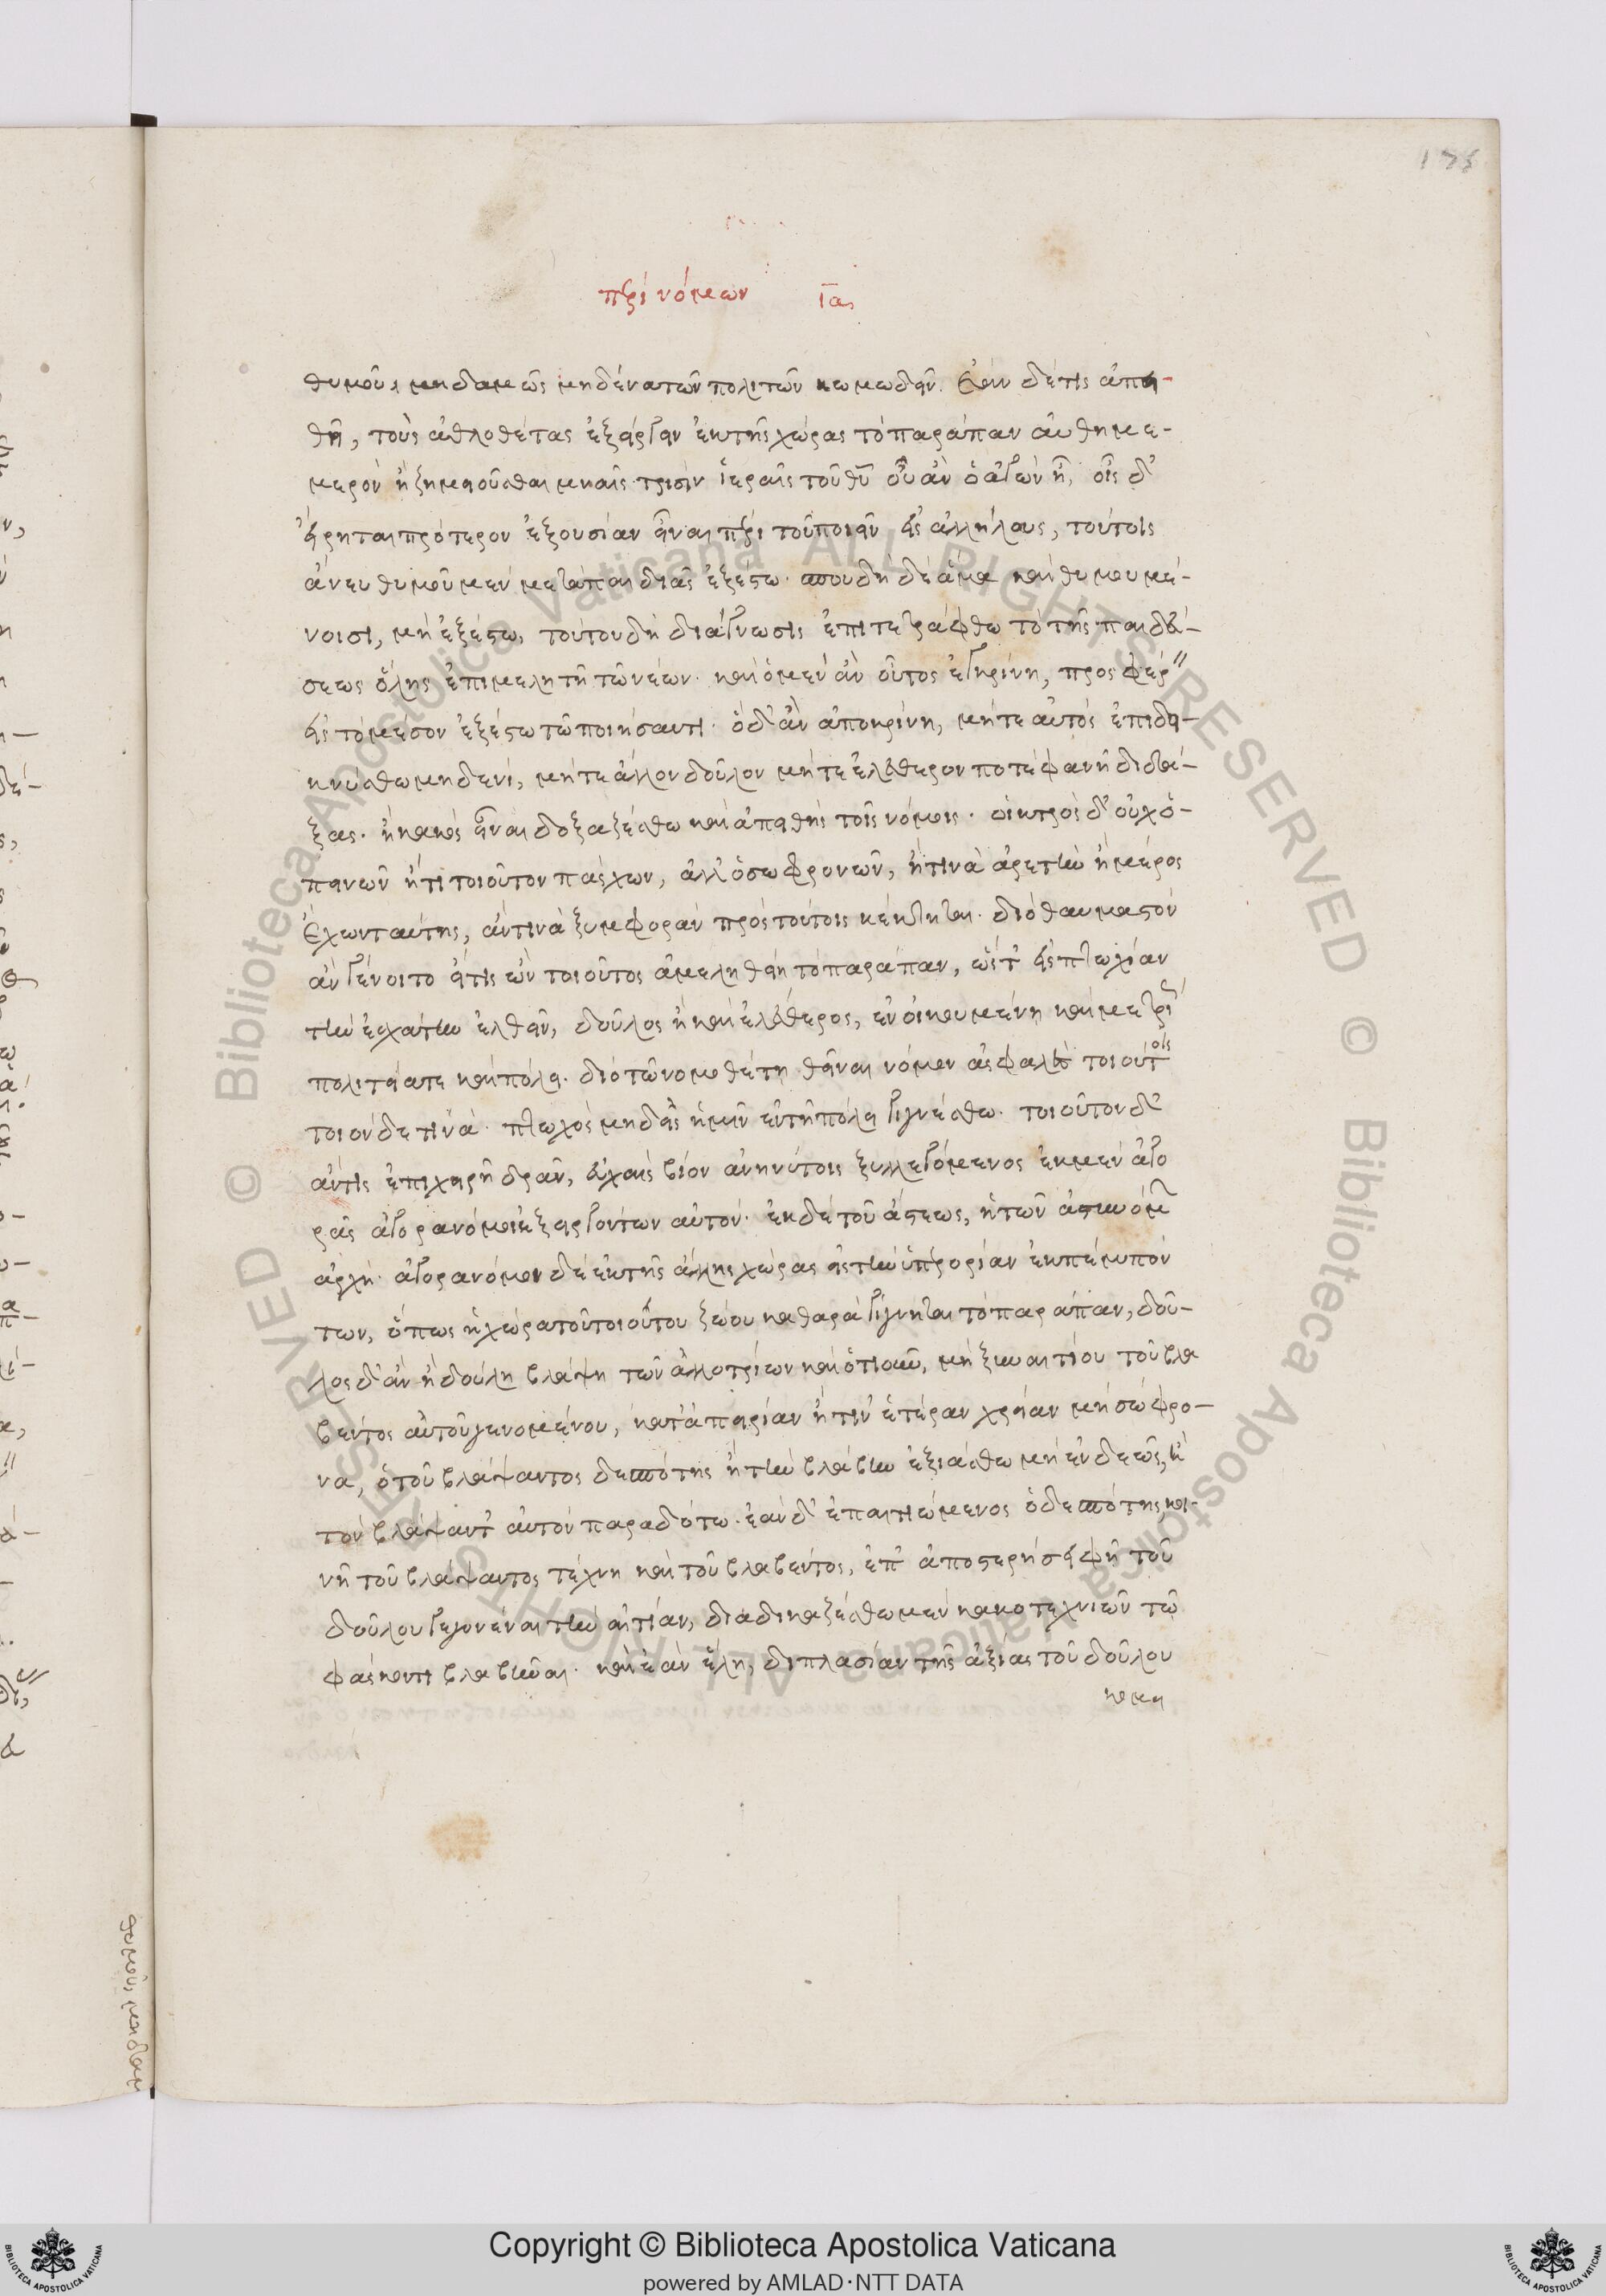 175
περὶ νόμων ια
θυμοῦ, μηδαμῶς μηδένα τῶν πολιτῶν κωμωδεῖν. Ἐὰν δέ τις ἀπει-
θῆ, τοὺς ἀθλοθέτας ἐξείργειν ἐκ τῆς χώρας τὸ παράπαν αὐθημε-
μερὸν ἢ ζημιοῦσθαι μναῖς τρισὶν ἱεραῖς τοῦ θῦ οὗ ἂν ὁ ἀγὼν ἦ, οἷς δ'
εἴρηται πρότερον ἐξουσίαν εἶναι περὶ τοῦ ποιεῖν εἰς ἀλλήλους, τούτοις
ἄνευ θυμοῦ μὲν μετὰ παιδιᾶς ἐξέστω. σπουδῆ δὲ ἅμα καὶ θυμουμέ-
νοισι, μὴ ἐξέστω, τούτου δὴ διάγνωσις ἐπιτετράφθω τὸ τῆς παιδεύ-
σεως ὅλης ἐπιμελητῆ τῶν νέων. καὶ ὃ μὲν ἂν οὗτος ἐγκρίνη, προσφέρειν
εἰς τὸ μέσον ἐξέστω τῶ ποιήσαντι. ὃ δ' ἂν ἀποκρίνη, μήτε αὐτὸς ἐπιδει-
κνύσθω μηδενί, μήτε ἄλλον δοῦλον μήτε ἐλεύθερον ποτὲ φανῆ διδά-
ξας. ἢ κακὸς εἶναι δοξαζέσθω καὶ ἀπειθὴς τοῖς νόμοις. οἰκτρὸς δ' οὐχ ὁ-
πεινῶν ἤ τι τοιοῦτον πάσχων, ἀλλ' ὁ σωφρονῶν, ἤ τινα ἀρετὴν ἢ μέρος
ἔχων ταύτης, ἄν τινα ξυμφορὰν πρὸς τούτοις κέκτηται. διὸ θαυμαστὸν
ἂν γένοιτο εἴ τις ὢν τοιοῦτος ἀμεληθείη τὸ παράπαν, ὥστ' εἰς πτωχίαν
τὴν ἐσχάτην ἐλθεῖν, δοῦλος ἢ καὶ ἐλεύθερος, ἐν οἰκουμένη καὶ μετρία
πολιτεία τε καὶ πόλει. διὸ τῶ νομοθέτη θεῖναι νόμον ἀσφαλὲς τοιούτοις
τοιόνδε τινὰ. πτωχὸς μηδεὶς ἡμῖν ἐν τῆ πόλει γιγνέσθω. τοιοῦτον δ'
ἄν τις ἐπιχειρῆ δρᾶν, εὐχαῖς βίον ἀνηνύτοις ξυλλεγόμενος ἐκ μὲν ἀγο
ρᾶς ἀγορανόμοι ἐξειργόντων αὐτόν. ἐκ δὲ τοῦ ἄστεως, ἡ τῶν ἀστυνόμων
ἀρχή. ἀγορανόμοι δὲ ἐκ τῆς ἄλλης χώρας εἰς τὴν ὑπερορίαν ἐκπεμπόν
των, ὅπως ἡ χώρα τοῦ τοιούτου ζώου καθαρὰ γίγνηται τὸ παράπαν, δοῦ-
λος δ' ἂν ἢ δούλη βλάψη τῶν ἀλλοτρίων καὶ ὁτιοῦν, μὴ ξυναιτίου τοῦ βλα
βέντος αὐτοῦ γενομένου, κατ' ἀπειρίαν ἤ τιν' ἑτέραν χρείαν μὴ σώφρο-
να, ὁ τοῦ βλάψαντος δεσπότης ἢ τὴν βλάβην ἐξιάσθω μὴ ἐνδεῶς, ἢ
τὸν βλάψαντ' αὐτὸν παραδότω. ἐὰν δ' ἐπαιτιώμενος ὁ δεσπότης κοι-
νῆ τοῦ βλάψαντος τέχνη καὶ τοῦ βλαβέντος, ἐπ' ἀποστερήσει φῆ τοῦ
δούλου γεγονέναι τὴν αἰτίαν, διαδικαζέσθω μὲν κακοτεχνιῶν τῶ
φάσκοντι βλαβῆναι. καὶ ἐὰν ἕλη, διπλασίαν τῆς ἀξίας τοῦ δούλου
κομι
θυμοῦ, μηδαμ